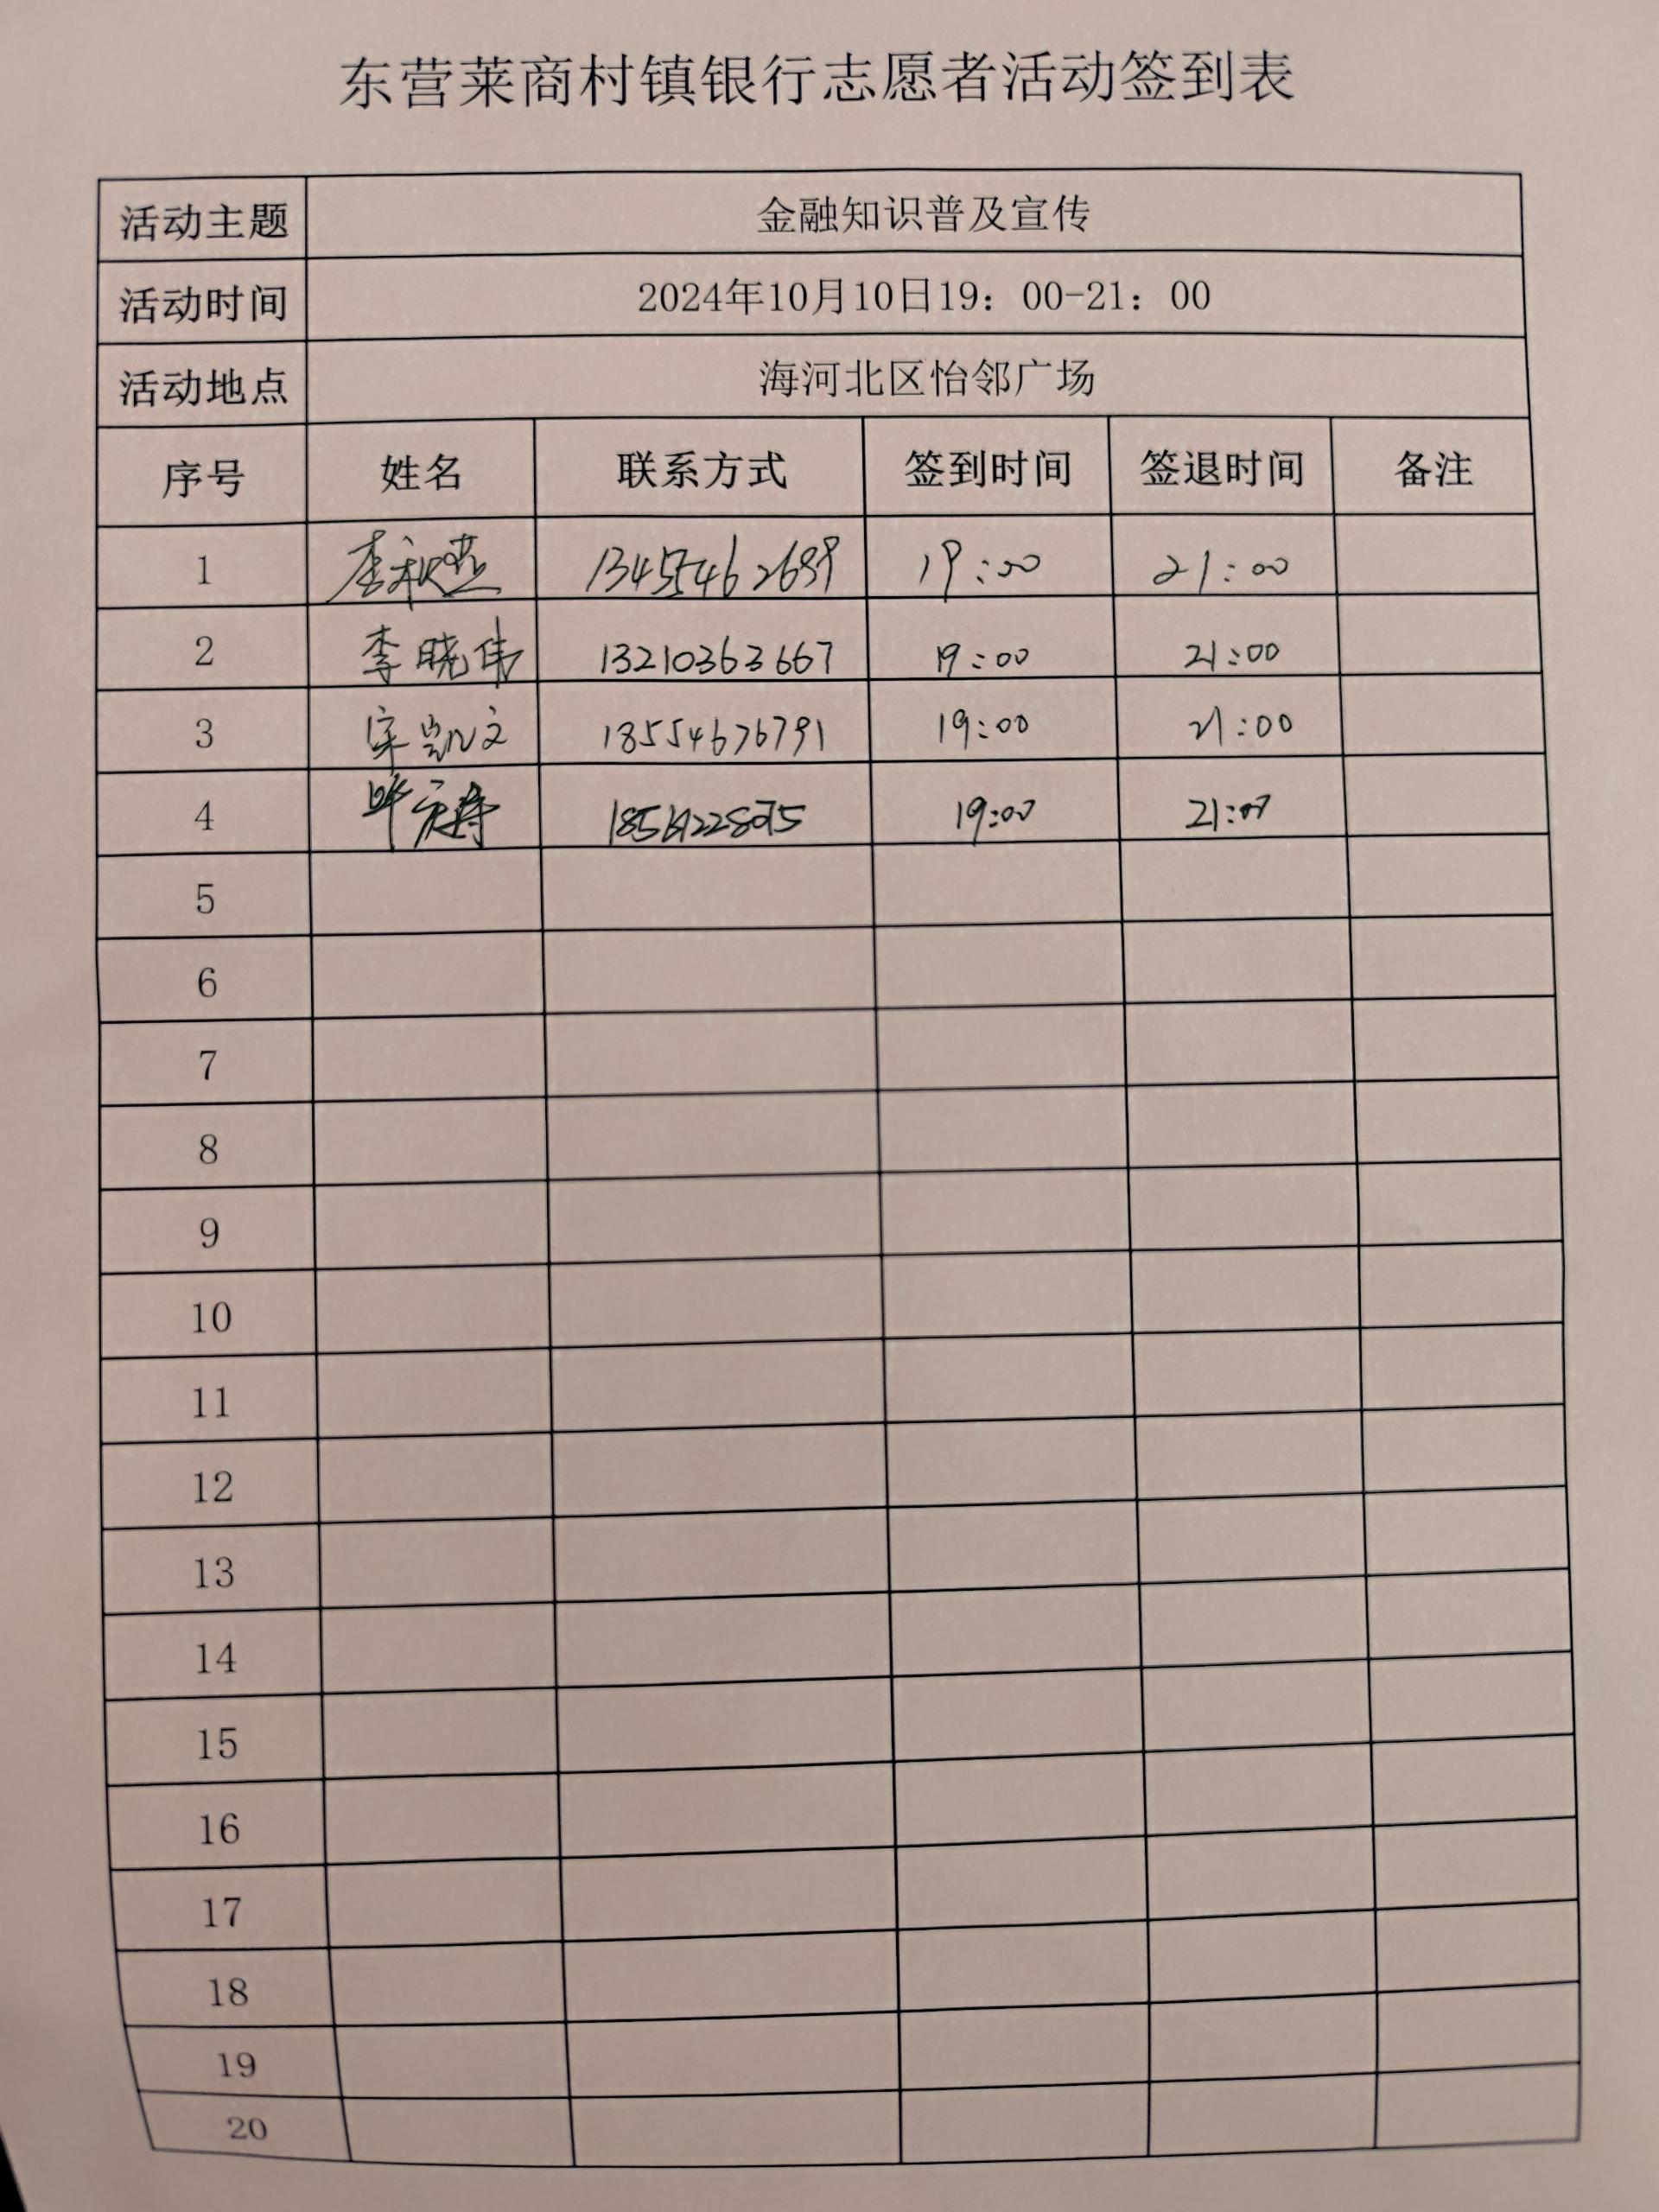 东营莱商村镇银行志愿者活动签到表
活动主题 金融知识普及宣传
活动时间 2024年10月10日19：00-21：00
活动地点 海河北区怡邻广场
序号 姓名 联系方式 签到时间 签退时间 备注
1 李秋燕 13455462689 19:00 21:00
2 李晓伟 13210363667 19:00 21:00
3 宋凯文 18554676791 19:00 21:00
4 19:00 21:00
5
6
7
8
9
10
11
12
13
14
15
16
17
18
19
20